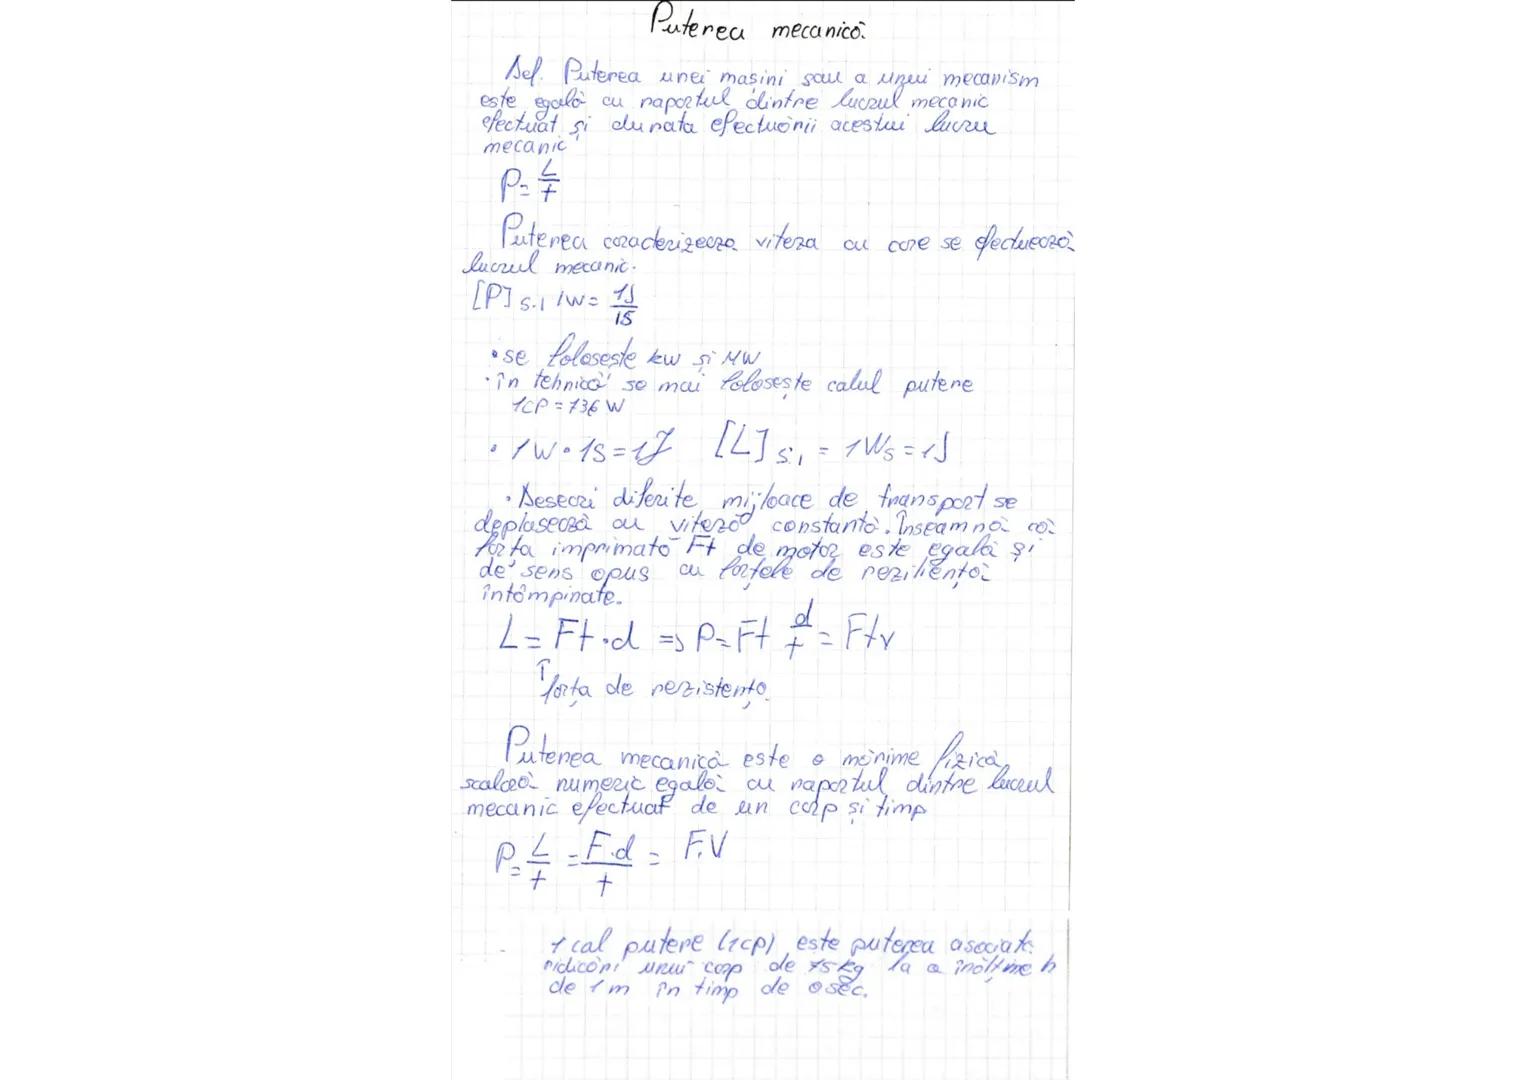 Puterea mecanică.
Def. Puterea unei mașini sau a unui mecanism
este egală cu raportul dintre lucrul mecanic
efectuat și durata efectuării acestui lucru
mecanic
P = L/t
Puterea caracterizează viteza cu care se efectuează
lucrul mecanic.
[P] S.I 1W = 1J/1S
• se folosește kw și MW
• în tehnică se mai folosește calul putere
1CP = 736 W
• 1W • 1S = 1J [L] S.I = 1Ws = 1J
• Deseori diferite mijloace de transport se
deplasează cu viteză constantă. Înseamnă că
forța imprimată Ft de motor este egală și
de sens opus cu forțele de reziliență
întâmpinate.
L = Ft • d => P = Ft d/t = Ftv
↑ forța de rezistență
Puterea mecanică este o mărime fizică
scalară numeric egală cu raportul dintre lucrul
mecanic efectuat de un corp și timp
P = L/t = F.d/t = F.V
1 cal putere (1cp) este puterea asociată
ridicări unui corp de 75 kg la o înălțime h
de 1 m în timp de o sec.